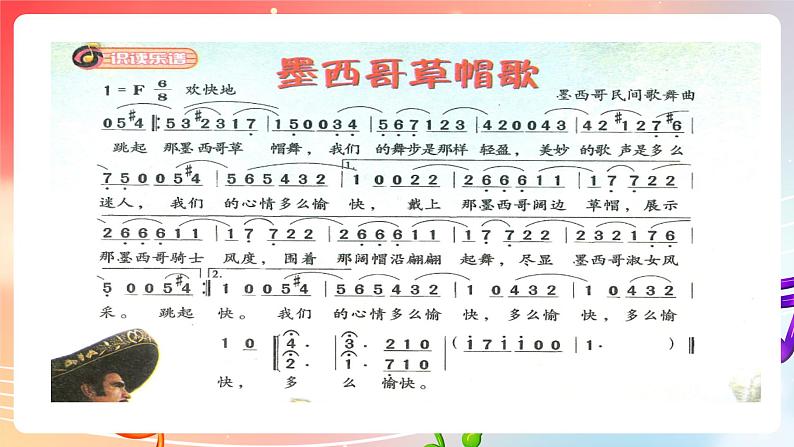 识读乐谱
墨西哥草帽歌
1 = F 6/8 欢快地
墨西哥民间歌舞曲
0 5 #4 ‖: 5 3 #2 3 1 7 | 1 5 0 0 3 4 | 5 6 7 1 2 3 | 4 2 0 0 4 3 | 4 2 #1 2 7 #6 |
跳起 那墨西哥草 帽舞，我们 的舞步是那样 轻盈，美妙 的歌声是多么
7 5 0 0 5 #4 | 5 6 5 4 3 2 | 1. 1 0 0 2 2 | 2 6 6 6 1 1 | 1 7 7 2 2 |
迷人，我们 的心情多么愉 快，戴上 那墨西哥阔边 草帽，展示
2 6 6 6 1 1 | 1 7 7 2 2 | 2 6 6 6 1 1 | 1 7 7 2 2 | 2 3 2 1 7 6 |
那墨西哥骑士 风度，围着 那阔帽沿翩翩 起舞，尽显 墨西哥淑女风
5 0 0 5 #4 :‖ 2. 1 0 0 5 #4 | 5 6 5 4 3 2 | 1 0 4 3 2 | 1 0 4 3 2 |
采。跳起 快。我们 的心情多么愉 快，多么愉 快，多么愉
1 0 4· 3· | 3· 2 1 0 | ( i 7 i i 0 0 | 1· ) ‖
2· 1· | 1· 7 1 0
快，多 么 愉快。